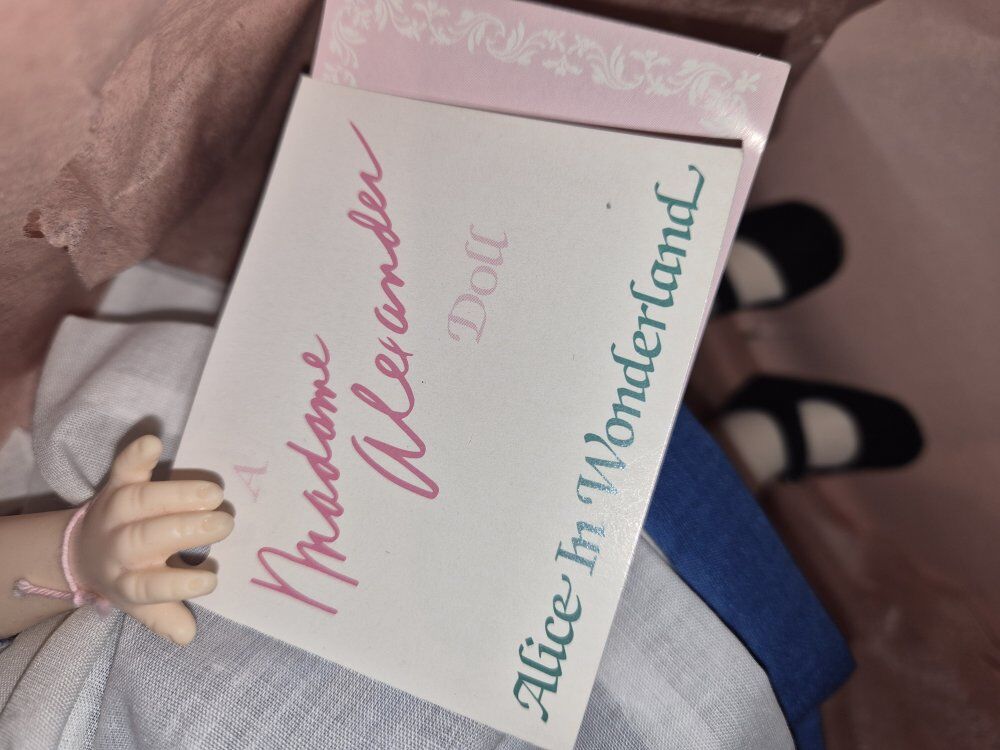 A
Madame
Alexander
Doll
Alice In Wonderland